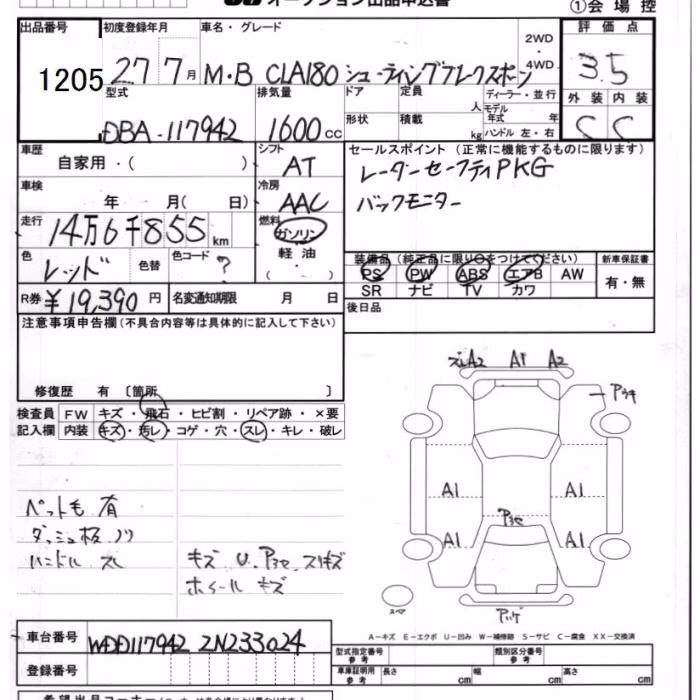 オークション出品申込書
①会場控
出品番号 初度登録年月 車名・グレード 2WD ・ 4WD 評価点
1205 27 7月 M・B CLA180 シューティングブレークスポーツ 3.5
型式 排気量 ドア 定員 人 ディーラー・並行 外装 内装
DBA-117942 1600cc 形状 積載 kg モデル年式 年 ハンドル 左・右 C C
車歴 シフト セールスポイント (正常に機能するものに限ります)
自家用・( ) AT レーダーセーフティPKG
車検 冷房 バックモニター
年 月( 日) AAC
走行 14万6千855km 燃料 ガソリン
軽油
・( )
色 レッド 色替 色コード ?
装備品 (純正品に限り○をつけてください) 新車保証書
PS PW ABS エアB AW 有・無
SR ナビ TV カワ
R券 ¥19,390円 名変通知期限 月 日 後日品
注意事項申告欄(不具合内容等は具体的に記入して下さい)
修復歴 有 〔箇所 〕
検査員 FW キズ・飛石・ヒビ割・リペア跡・×要
記入欄 内装 キズ・汚レ・コゲ・穴・スレ・キレ・破レ
ズレA2 A1 A2
Pウキ
A1 A1
Pヨセ
A1 A1
スペア Pハゲ
ペット毛 有
ダッシュ板 ノリ
ハンドル スレ
キズ U Pヨセ スリキズ
ホイール キズ
A-キズ E-エクボ U-凹み W-補修跡 S-サビ C-腐食 XX-交換済
車台番号 WDD117942 2N233024
型式指定番号 参考 類別区分番号 参考
登録番号 車庫証明用 参考 長さ cm 幅 cm 高さ cm
希望出品コーナー